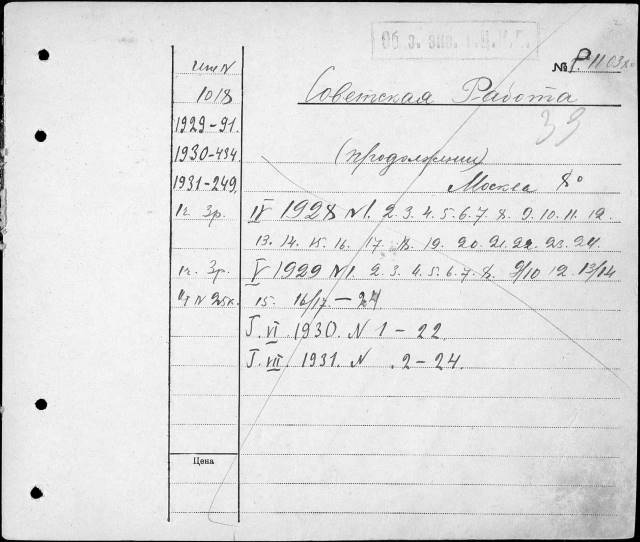 Об. э. экз.
№ Р-1103
Инв N
1018
Советская Работа
1929-91.
33
1930-434.
(продолжение)
1931-249.
Москва 8°
1г. 3р.
IV 1928 N 1. 2. 3. 4. 5. 6. 7. 8. 9. 10. 11. 12.
13. 14. 15. 16. 17. 18. 19. 20. 21. 22. 23. 24.
1г. 3р.
V 1929 N 1. 2. 3. 4. 5. 6. 7. 8. 9/10 12. 13/14
N 25к.
15. 16/17. - 24
Г. VI. 1930. N 1 - 22.
Г. VII. 1931. N . 2 - 24.
Цена